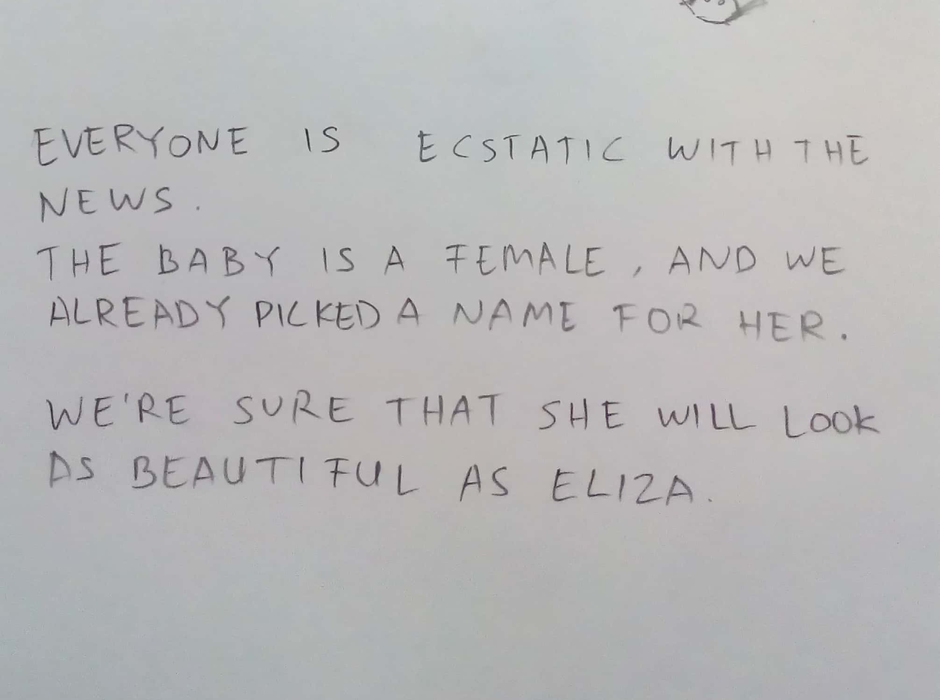 EVERYONE IS ECSTATIC WITH THE
NEWS.
THE BABY IS A FEMALE, AND WE
ALREADY PICKED A NAME FOR HER.
WE'RE SURE THAT SHE WILL LOOK
AS BEAUTIFUL AS ELIZA.